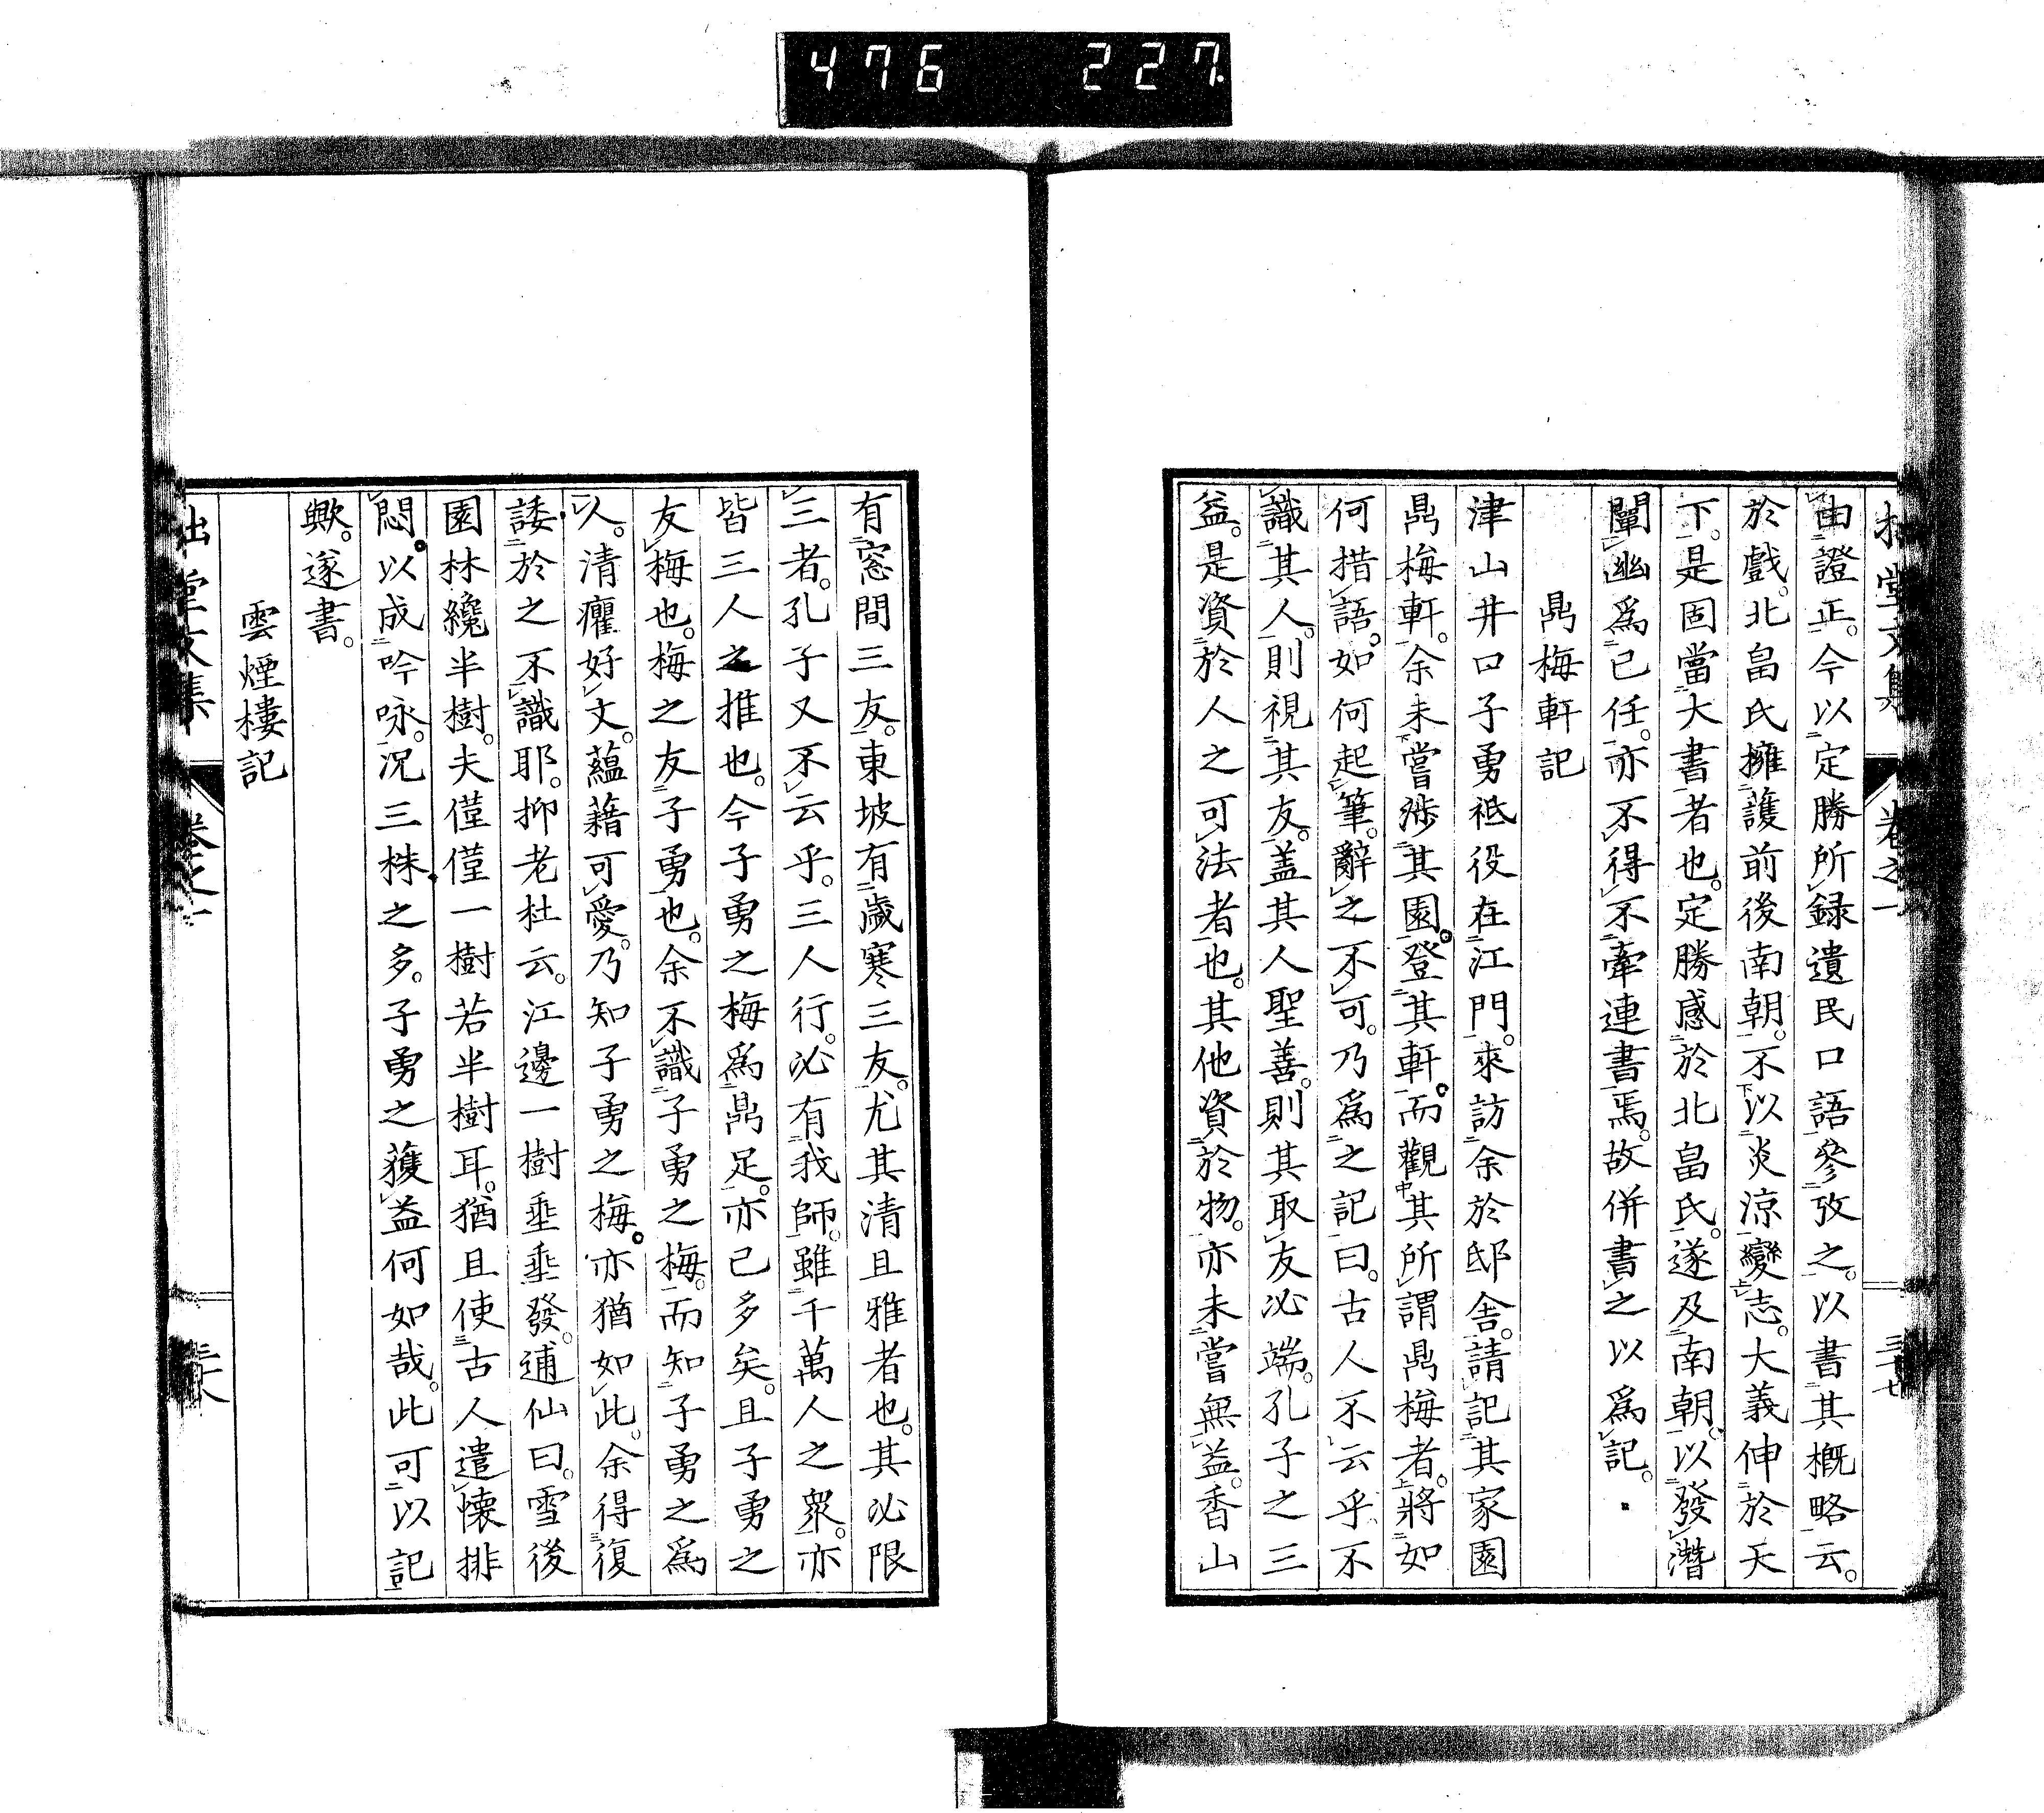 476 227
拙堂文集 卷之一
由證正。今以定勝所録遺民口語參攷之。以書其概略云。
於戲。北畠氏擁護前後南朝。不以炎涼變志。大義伸於天
下。是固當大書者也。定勝感於北畠氏。遂及南朝。以發潛
闡幽爲己任。亦不得不牽連書焉。故併書之以爲記。
鼎梅軒記
津山井口子勇祗役在江門。來訪余於邸舍。請記其家園
鼎梅軒。余未嘗涉其園。登其軒。而觀其所謂鼎梅者。將如
何措語。如何起筆。辭之不可。乃爲之記曰。古人不云乎不
識其人。則視其友。盖其人聖善。則其取友必端。孔子之三
益。是資於人之可法者也。其他資於物。亦未嘗無益。香山
有窓間三友。東坡有歲寒三友。尤其清且雅者也。其必限
三者。孔子又不云乎。三人行。必有我師。雖千萬人之衆。亦
皆三人之推也。今子勇之梅爲鼎足。亦已多矣。且子勇之
友梅也。梅之友子勇也。余不識子勇之梅。而知子勇之爲
人。清癯好文。蘊藉可愛。乃知子勇之梅。亦猶如此。余得復
諉於之不識耶。抑老杜云。江邊一樹垂垂發。逋仙曰。雪後
園林纔半樹。夫僅僅一樹若半樹耳。猶且使古人遣懐排
悶。以成吟咏。况三株之多。子勇之獲益何如哉。此可以記
歟。遂書。
雲煙樓記
拙堂文集 卷之一